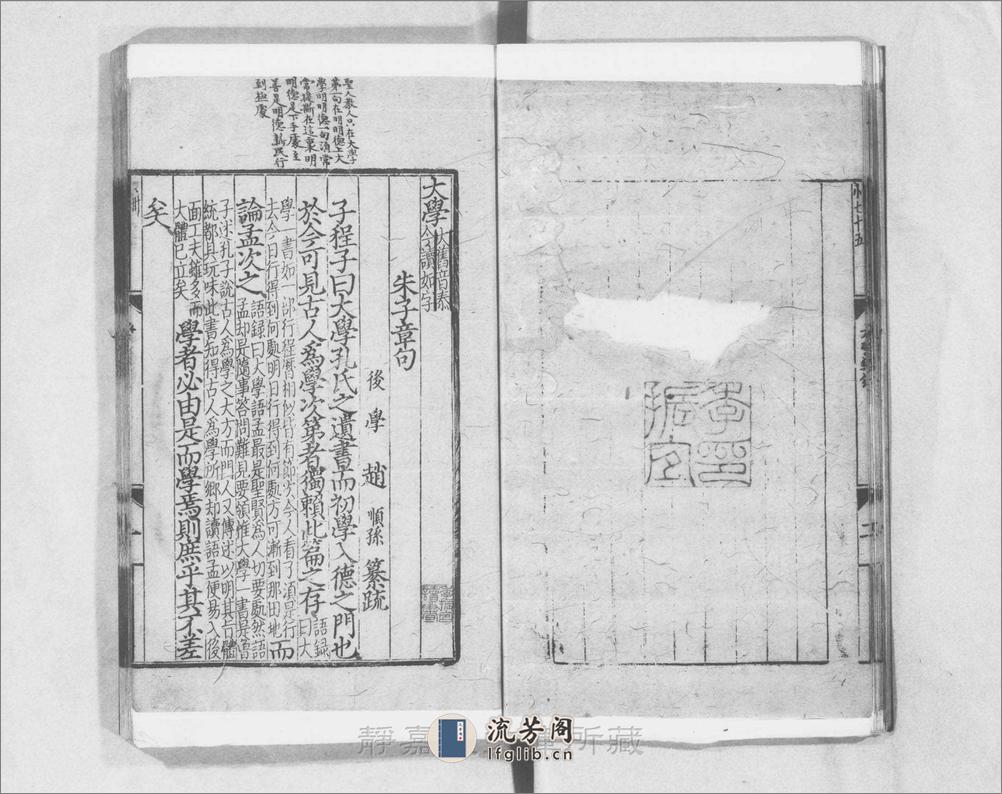 聖人教人只在大學
第一句在明明德上大
學明明德一句須常
常提撕在這裏明
明德是下手處至
善是明德新民行
到極處
大學
大舊音泰
今讀如字
朱子章句
後學 趙 順孫 纂疏
子程子曰大學孔氏之遺書而初學入德之門也
於今可見古人爲學次第者獨賴此篇之存
語録
曰大
學一書如一部行程曆相似皆有節次今人看了須是行
去今日行得到何處明日行得到何處方可漸到那田地
而
論孟次之
語録曰大學語孟最是聖賢為人切要處然語
孟却是隨事答問難見要領惟大學一書是曾
子述孔子說古人為學之大方而門人又傳述以明其旨體
統都具玩味此書知得古人為學所鄉却讀語孟便易入後
面工夫雖多而
大體已立矣
學者必由是而學焉則庶乎其不差
矣
靜嘉 所藏
流芳阁
lfglib.cn